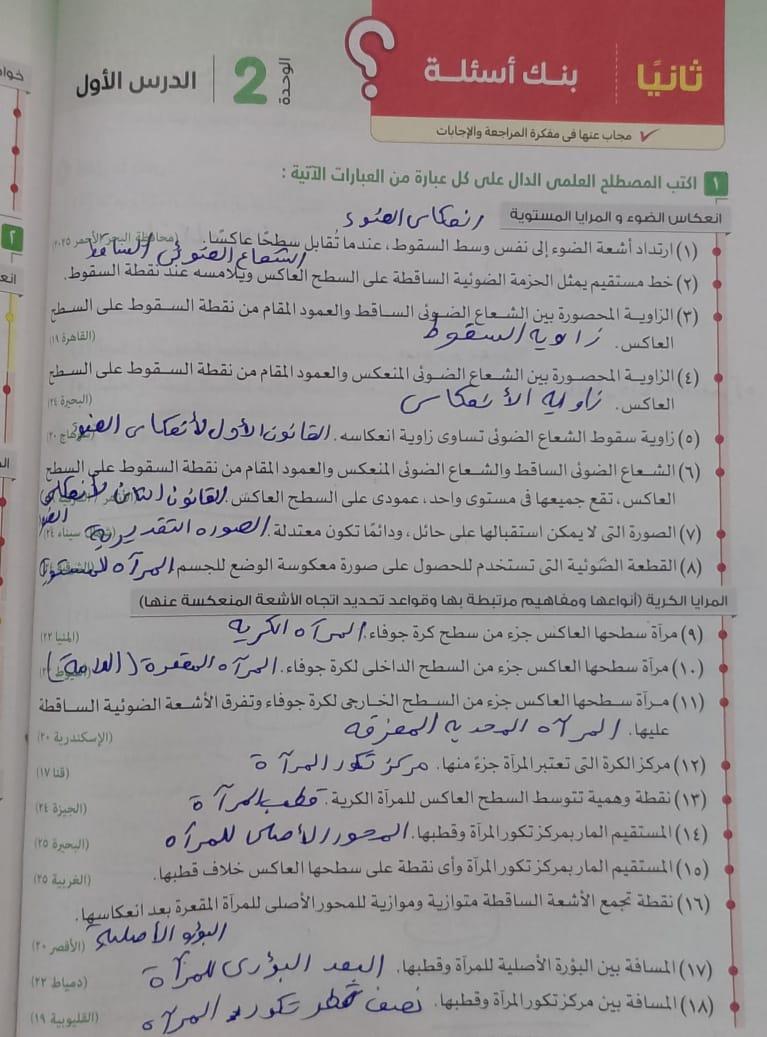 ثانيًا
بنك أسئلة
الوحدة 2 الدرس الأول
مجاب عنها فى مفكرة المراجعة والإجابات
١ اكتب المصطلح العلمى الدال على كل عبارة من العبارات الآتية :
انعكاس الضوء و المرايا المستوية
انعكاس الضوء
(١) ارتداد أشعة الضوء إلى نفس وسط السقوط، عندما تقابل سطحًا عاكسًا. (محافظة البحر الأحمر ٢٠٢٥)
الشعاع الضوئى الساقط
(٢) خط مستقيم يمثل الحزمة الضوئية الساقطة على السطح العاكس ويلامسه عند نقطة السقوط.
(٣) الزاوية المحصورة بين الشعاع الضوئى الساقط والعمود المقام من نقطة السقوط على السطح
العاكس. زاويه السقوط (القاهرة ١٩)
(٤) الزاوية المحصورة بين الشعاع الضوئى المنعكس والعمود المقام من نقطة السقوط على السطح
العاكس. زاويه الأنعكاس (البحيرة ٢٤)
(٥) زاوية سقوط الشعاع الضوئى تساوى زاوية انعكاسه. القانون الأول لأنعكاس الضوء
(٦) الشعاع الضوئى الساقط والشعاع الضوئى المنعكس والعمود المقام من نقطة السقوط على السطح
العاكس، تقع جميعها فى مستوى واحد، عمودى على السطح العاكس. القانون الثانى لأنعكاس
الضوء
(٧) الصورة التى لا يمكن استقبالها على حائل، ودائمًا تكون معتدلة. الصوره التقديرية سيناء ٢٤)
(٨) القطعة الضوئية التى تستخدم للحصول على صورة معكوسة الوضع للجسم. المرآه المستوية
المرايا الكرية (أنواعها ومفاهيم مرتبطة بها وقواعد تحديد اتجاه الأشعة المنعكسة عنها)
(٩) مرآة سطحها العاكس جزء من سطح كرة جوفاء. المرآه الكريه (المنيا ٢٢)
(١٠) مرآة سطحها العاكس جزء من السطح الداخلى لكرة جوفاء. المرآه المقعرة (اللامة)
(١١) مرآة سطحها العاكس جزء من السطح الخارجى لكرة جوفاء وتفرق الأشعة الضوئية الساقطة
عليها. المرآه المحدبه المفرقه (الإسكندرية ٢٠)
(١٢) مركز الكرة التى تعتبر المرآة جزءً منها. مركز تكور المرآة (قنا ١٧)
(١٣) نقطة وهمية تتوسط السطح العاكس للمرآة الكرية. قطب المرآة (الجيزة ٢٤)
(١٤) المستقيم المار بمركز تكور المرآة وقطبها. المحور الأصلى للمرآه (البحيرة ٢٥)
(١٥) المستقيم المار بمركز تكور المرآة وأى نقطة على سطحها العاكس خلاف قطبها. (الغربية ٢٥)
(١٦) نقطة تجمع الأشعة الساقطة متوازية وموازية للمحور الأصلى للمرآة المقعرة بعد انعكاسها.
البؤره الأصليه (الأقصر ٢٠)
(١٧) المسافة بين البؤرة الأصلية للمرآة وقطبها. البعد البؤرى للمرآة (دمياط ٢٢)
(١٨) المسافة بين مركز تكور المرآة وقطبها. نصف قطر تكور المرآه (القليوبية ١٩)